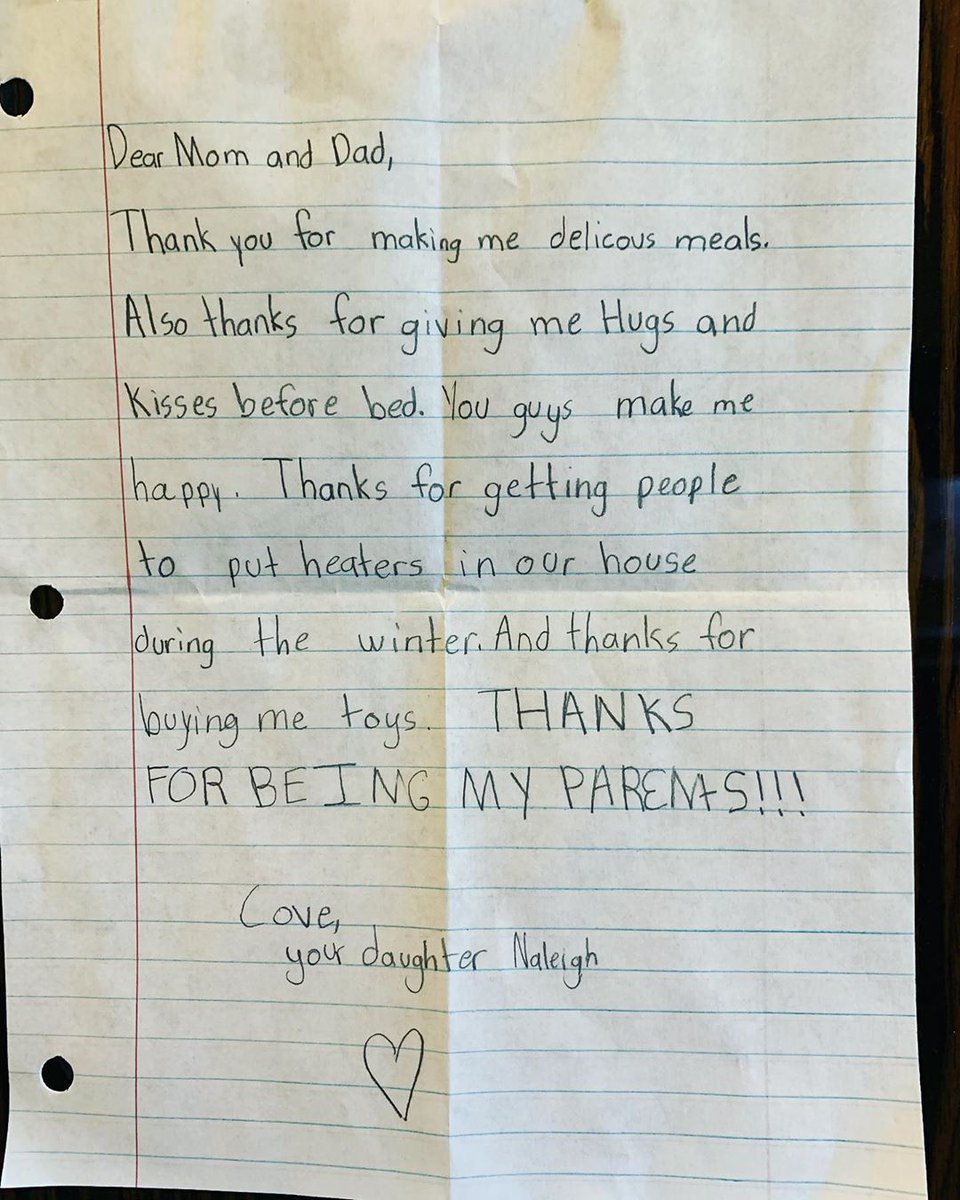 Dear Mom and Dad,
Thank you for making me delicous meals.
Also thanks for giving me Hugs and
Kisses before bed. You guys make me
happy. Thanks for getting people
to put heaters in our house
during the winter. And thanks for
buying me toys. THANKS
FOR BEING MY PARENtS!!!
Love,
your daughter Naleigh